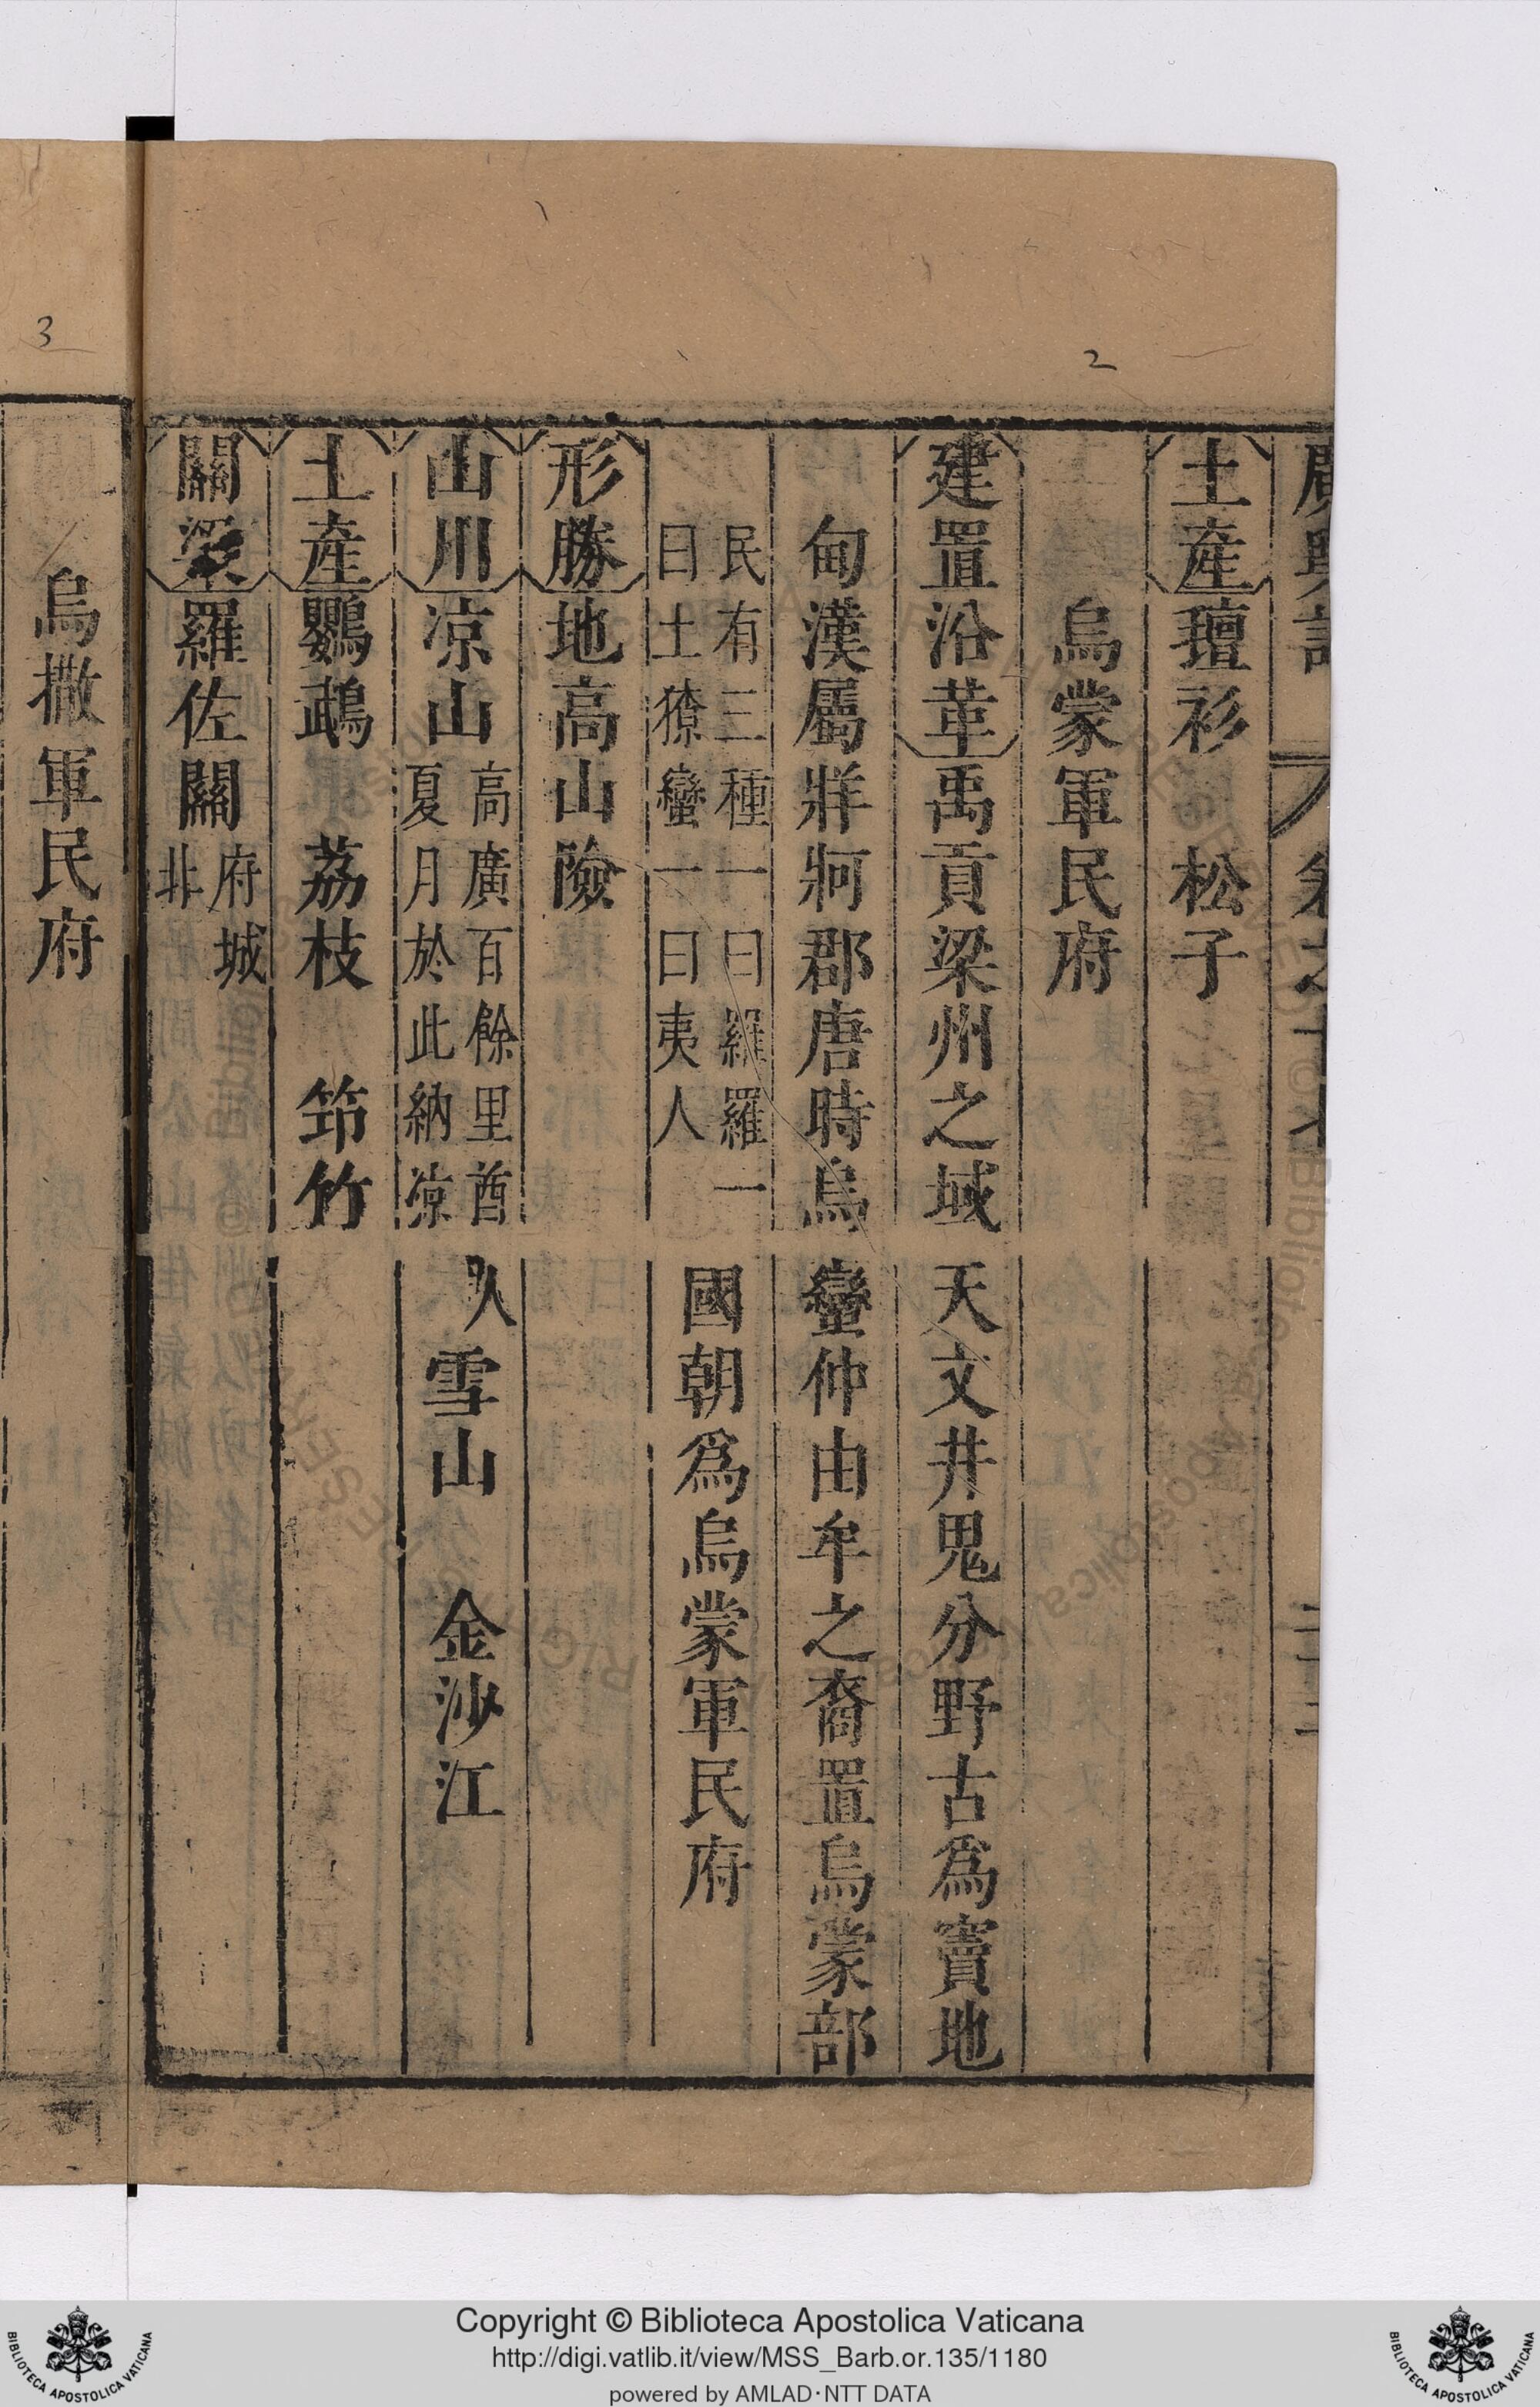 2
土產氊衫　松子
烏蒙軍民府
建置沿革禹貢梁州之域天文井鬼分野古爲竇地
甸漢屬牂牁郡唐時烏蠻仲由牟之裔置烏蒙部
民有三種一曰羅羅一
曰土獠蠻一曰夷人
國朝爲烏蒙軍民府
形勝地高山險
山川凉山
高廣百餘里酋
夏月於此納凉
雪山　金沙江
土產鸚鵡　荔枝　筇竹
關梁羅佐關
府城
北
3
烏撒軍民府
Copyright © Biblioteca Apostolica Vaticana
http://digi.vatlib.it/view/MSS_Barb.or.135/1180
powered by AMLAD·NTT DATA
BIBLIOTECA APOSTOLICA VATICANA
BIBLIOTECA APOSTOLICA VATICANA